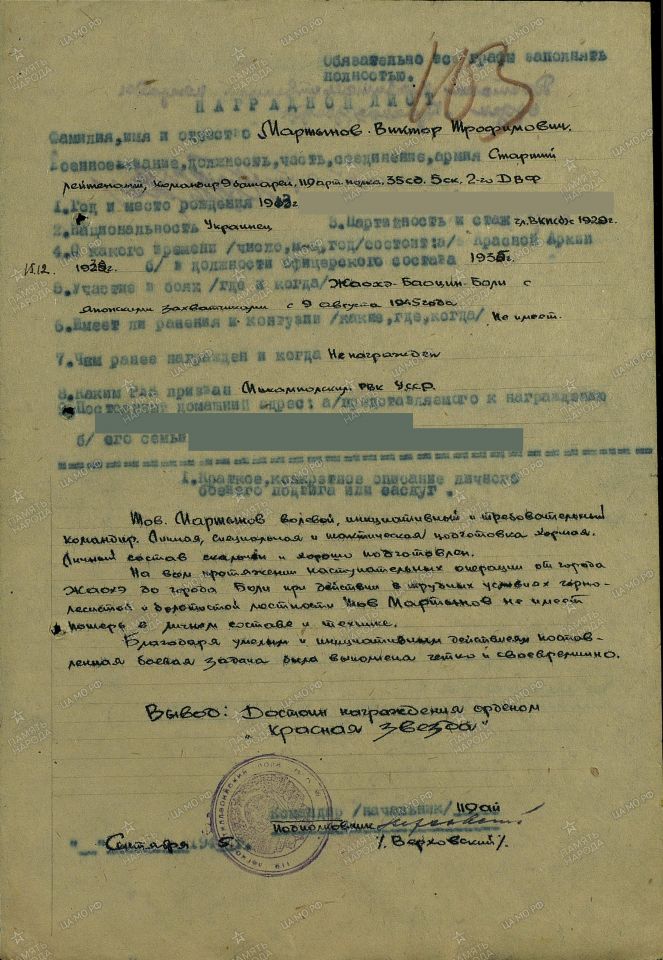 Обязательно все графы заполнять
полностью.
103
НАГРАДНОЙ ЛИСТ
Фамилия, имя и отчество Мартынов Виктор Трофимович.
Военное звание, должность, часть, соединение, армия Старший
лейтенант, командир 9 батареи, 119 арт. полка, 35 сд. 5 ск. 2-го ДВФ
1. Год и место рождения 1913г
2. Национальность Украинец 3. Партийность и стаж чл. ВКП(б) с
4. С какого времени /число, м-ц, год/ состоит: а/ в Красной Армии
15.12. б/ в должности офицерского состава
5. Участие в боях /где и когда/ Жаохэ-Баоцин-Боли с
японскими захватчиками с 9 августа 1945 года
6. Имеет ли ранения и контузии /какие, где, когда/ Не имеет.
7. Чем ранее награжден и когда Не награжден
8. Каким РВК призван РВК УССР
9. Постоянный домашний адрес: а/ представляемого к награждению
б/ его семьи
1. Краткое, конкретное описание личного
боевого подвига или заслуг.
Тов. Мартынов волевой, инициативный и требовательный
командир. Личная, специальная и тактическая подготовка хорошая.
Личный состав сколочен и хорошо подготовлен.
На всем протяжении наступательных операции от города
Жаохэ до города Боли при действии в трудных условиях горно-
лесистой и болотистой местности тов Мартынов не имеет
потерь в личном составе и технике.
Благодаря умелым и инициативным действиям постав-
ленная боевая задача была выполнена четко и своевременно.
Вывод: Достоин награждения орденом
„Красная звезда"
Командир /начальник/ 119 ап
подполковник
Сентября 5 /. Верховский /.
ПАМЯТЬ НАРОДА
ЦАМО.РФ